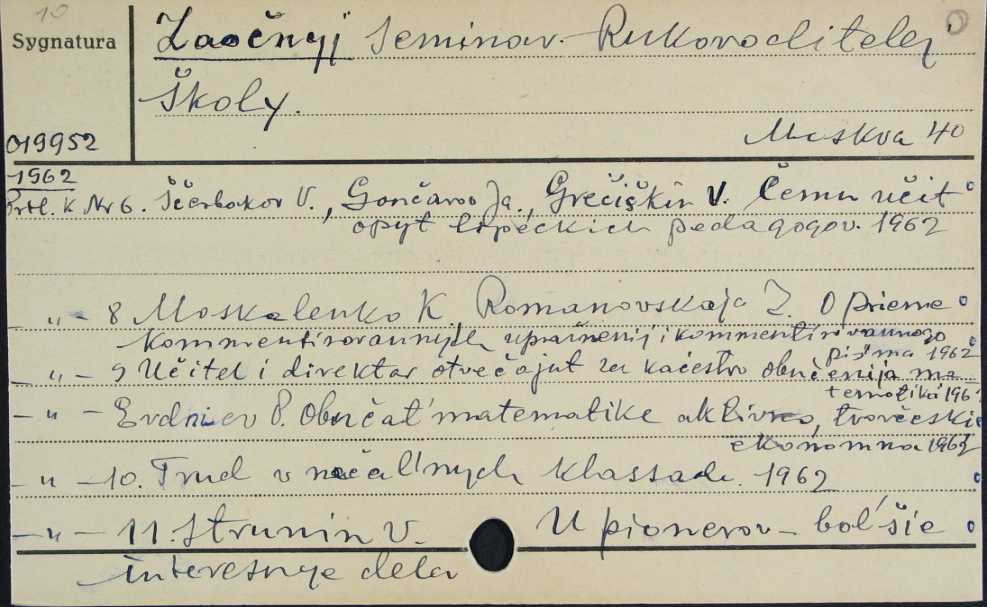 10
Sygnatura
Zaočnyj seminar. Rukovoditelej
školy.
019952
Moskva 40
1962
k Nr 6. Ščerbakov V., Gončarov Ja., Grečiškin V. Čemu učit
opyt lipeckich pedagogov. 1962
— " — 8 Moskalenko K Romanovskaja Z. O prieme
kommentirovannych upražnenij i kommentirovannogo
piśma 1962
— " — 9 Učitel i direktor otvečajut za kačestvo obučenija ma-
tematiki 1962
— " — Erdniev P. Obučat' matematike aktivno, tvorčeski
ekonomno 1962
— " — 10. Trud v načal'nych klassach. 1962
— " — 11. Strunin V. U pionerov — bol'šie
interesnye dela